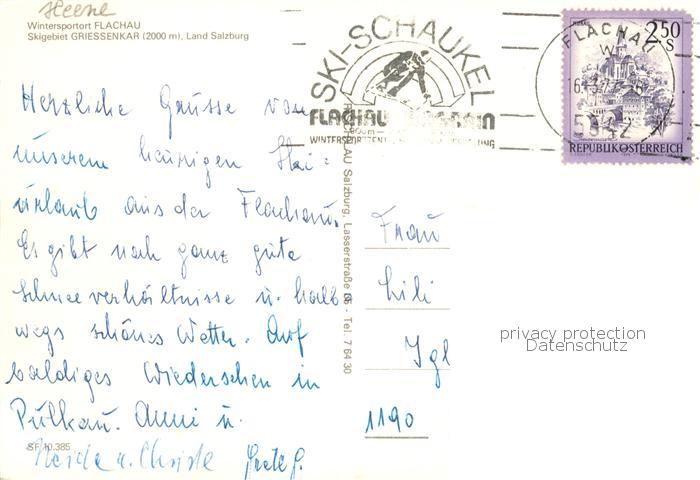 Heene
Wintersportort FLACHAU
Skigebiet GRIESSENKAR (2000 m), Land Salzburg
SKI-SCHAUKEL
FLACHAU
WINTERSPORTZENT
FLACHAU
16.
5542
2.50
S
REPUBLIK ÖSTERREICH
Herzliche Grüsse von
unserem heurigen Ski=
urlaub aus der Flachau.
Es gibt noch ganz gute
Schneeverhältnisse u. halb
wegs schönes Wetter. Auf
baldiges Wiedersehen in
Pulkau. Anni u.
Heide u. Christl Grete G.
SF 10.385
SCHAU Salzburg, Lasserstraße 6 - Tel. 7 64 30
Frau
Lili
Igl
1190
privacy protection
Datenschutz